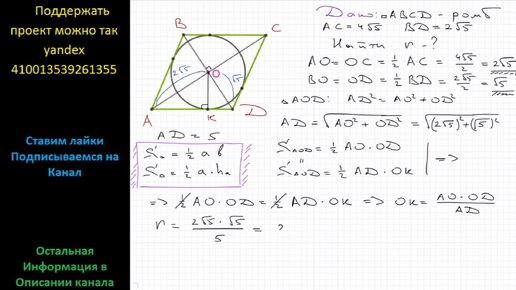 Поддержать
проект можно так
yandex
410013539261355
Ставим лайки
Подписываемся на
Канал
Остальная
Информация в
Описании канала
B
C
2√5
O
√5
A
K
D
AD = 5
S = 1/2 a b
S = 1/2 a · hₐ
Дано: ABCD - ромб
AC = 4√5 BD = 2√5
Найти r - ?
AO = OC = 1/2 AC = 4√5/2 = 2√5
BO = OD = 1/2 BD = 2√5/2 = √5
△AOD: AD² = AO² + OD²
AD = √(AO² + OD²) = √((2√5)² + (√5)²)
S AOD = 1/2 AO · OD
S AOD = 1/2 AD · OK
=>
=> 1/2 AO · OD = 1/2 AD · OK => OK = AO · OD/AD
r = 2√5 · √5/5 = 2